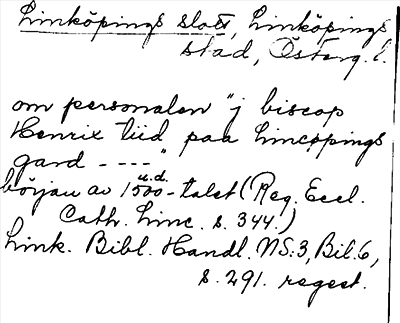 Linköpings slott, Linköpings
stad, Österg. l.
om personalen "j biscop
Henrix tiid paa Lincøpings
gard - - - -"
u.d.
början av 1500-talet (Reg. Eccl.
Cath. Linc. s. 344.)
Link. Bibl. Handl. NS:3, Bil. 6,
s. 291. regest.